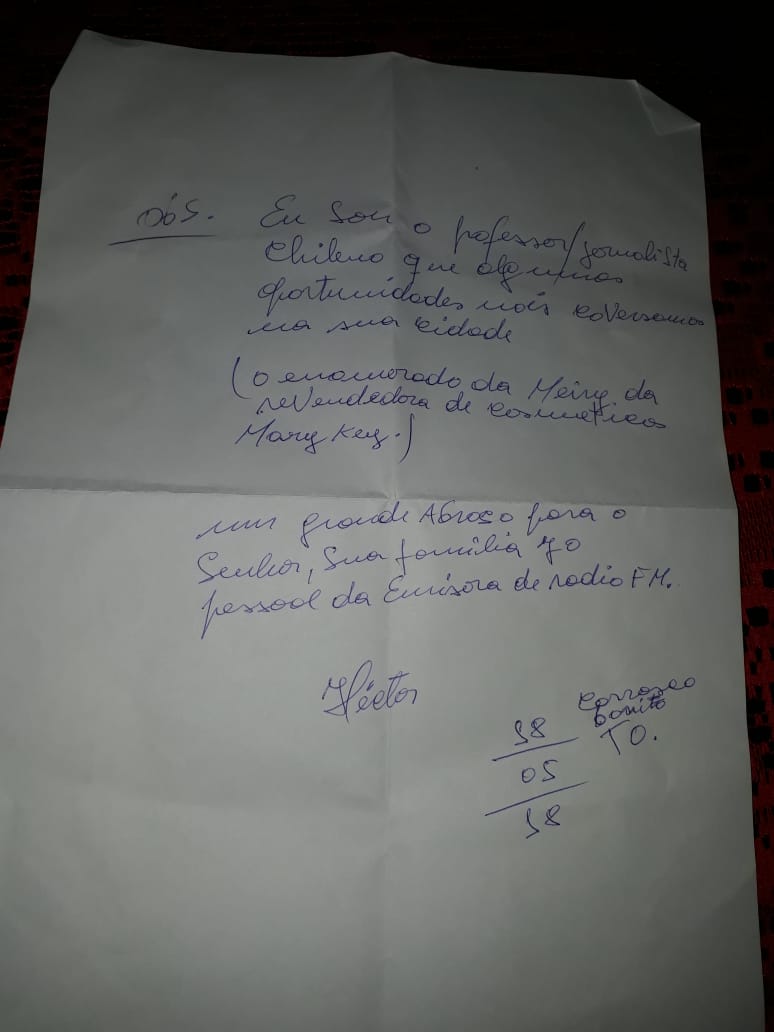 Obs. Eu sou o pofessor/jornalista
Chileno que algumas
oportunidades nois coversamos
na sua cidade
(o enamorado da Meiry da
revendedora de cosmeticos
Mary Key.)
um grande Abraso para o
Senhor, sua família y o
pessoal da Emisora de radio FM.
Héctor
Carrasco
bonito
TO.
18
05
18